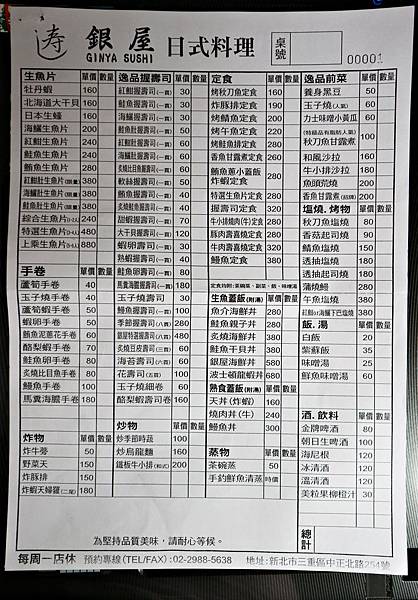 銀屋 日式料理
GINYA SUSHI
桌號
00001
生魚片 單價 數量
牡丹蝦 160
北海道大干貝 160
日本生蠔 160
海鱺生魚片 200
紅魽生魚片 280
鮭魚生魚片 280
鮪魚生魚片 280
紅魽肚生魚片(限量) 380
海鱺肚生魚片(限量) 380
鮭魚肚生魚片(限量) 380
綜合生魚片(1-2人) 240
特選生魚片(3-4人) 480
上乘生魚片(3-4人) 880
手卷 單價 數量
蘆筍手卷 40
玉子燒手卷 40
蘆筍蝦手卷 50
蝦卵手卷 50
鮪魚泥蔥花手卷 60
酪梨蝦手卷 70
鮭魚卵手卷 80
炙燒比目魚手卷 80
鰻魚手卷 100
馬糞海膽手卷 180
炸物 單價 數量
炸牛蒡 50
野菜天 150
炸豚排 150
炸蝦天婦羅(二尾) 180
逸品握壽司 單價 數量
紅魽握壽司(一貫) 30
鮭魚握壽司(一貫) 30
海鱺握壽司(一貫) 30
鮪魚握壽司(一貫) 40
紅魽肚壽司(一貫) 60
鮭魚肚壽司(一貫) 60
海鱺肚壽司(一貫) 60
炙燒比目魚壽司(一貫) 60
軟絲握壽司(一貫) 50
鮪魚蔥壽司(一貫) 50
炙燒鮭魚握壽司(一貫) 50
甜蝦握壽司(一貫) 70
大干貝握壽司(一貫) 120
蝦卵壽司(一貫) 30
熟蝦握壽司(一貫) 40
鮭魚卵壽司(一貫) 80
馬糞海膽握壽司(一貫) 180
玉子燒壽司 30
鰻魚握壽司(一貫) 100
季節握壽司(八貫) 280
銀屋特選握壽司(八貫) 480
炙燒豆皮壽司(三貫) 60
海苔壽司(六貫) 60
花壽司(五貫) 100
玉子燒細卷 60
酪梨蝦壽司卷 160
炒物 單價 數量
炒季節時蔬 100
炒烏龍麵 160
鐵板牛小排(和式) 200
定食 單價 數量
烤秋刀魚定食 160
炸豚排定食 200
烤鯖魚定食 200
烤午魚定食 220
烤鮭魚排定食 280
香魚甘露煮定食 260
鮪魚蔥小蓋飯
炸蝦定食 280
特選生魚片定食 280
握壽司定食 320
牛小排燒肉(牛)定食 280
豚肉壽喜燒定食 320
牛肉壽喜燒定食 320
鰻魚定食 380
定食均附:茶碗蒸、副菜、飯、味噌湯
生魚蓋飯(附湯) 單價 數量
魚介海鮮丼 280
鮭魚親子丼 280
炙燒海鮮丼 380
鮭魚干貝丼 380
銀屋海鮮丼 580
波士頓龍蝦丼 680
熟食蓋飯(附湯) 單價 數量
天丼(炸蝦) 160
燒肉丼(牛) 240
鰻魚丼 300
蒸物 單價 數量
茶碗蒸 50
手釣鮮魚清蒸 時價
逸品前菜 單價 數量
養身黑豆 50
玉子燒(人氣) 60
力士味噌小黃瓜 60
(特級品有脂肪人氣)
秋刀魚甘露煮 100
和風沙拉 160
牛小排沙拉 180
魚頭荒燒 200
香魚甘露煮(招牌) 200
塩燒,烤物 單價 數量
秋刀魚塩燒 80
香菇起司燒 90
鯖魚塩燒 150
透抽塩燒 180
透抽起司燒 180
蒲燒鰻 280
午魚塩燒 380
紅魽or海鱺下巴塩燒 380
飯.湯 單價 數量
白飯 20
紫蘇飯 35
味噌湯 25
鮮魚味噌湯 60
酒.飲料 單價 數量
金牌啤酒 80
朝日生啤酒 100
海尼根 120
冰清酒 120
溫清酒 120
美粒果柳橙汁 30
總計
為堅持品質美味,請耐心等候。
每周一店休 預約專線(TEL/FAX):02-2988-5638 地址:新北市三重區中正北路254號